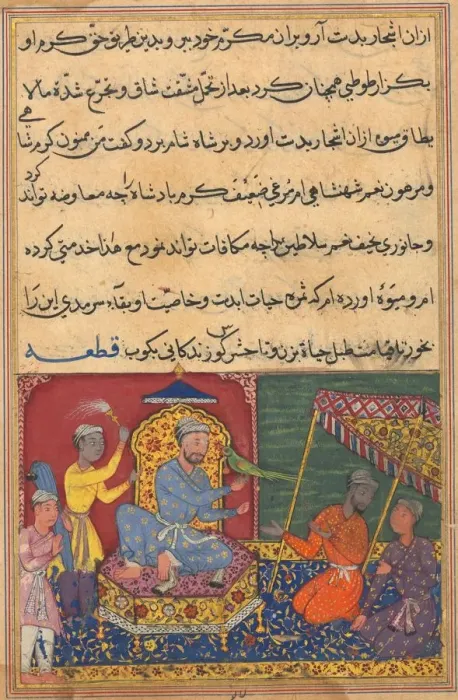 ازان اشجار بدست آر و بران مکرّم خود ببر و بدین طریق حق کرم او
بگزار طوطی همچنان کرد بعد از تحمّل مشقت شاق و تجرّع شدة مالا
یطاق میوه ازان اشجار بدست اورد و بر شاه شام برد و کفت من ممنون کرم شاهی
و مرهون نعم شهنشاهی ام مرغی ضعیف کرم بادشاه را چه معاوضه تواند کرد
و جانوری نحیف نعم سلاطین را چه مکافات تواند نمود مع هذا خدمتی کرده
ام و میوهٔ اورده ام که ثمره حیات ابدیت و خاصیت او بقاء سرمدی این را
بخور تا قیامت طبل حیاة بزن و تا حشر کوس زندکانی بکوب قطعه